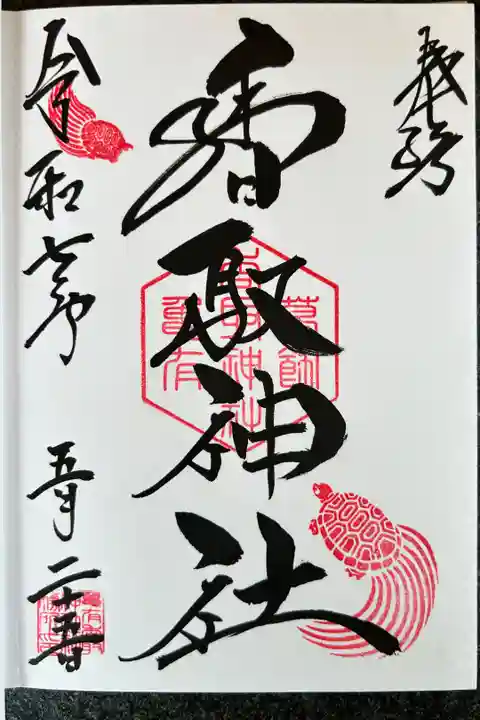 奉拝
香取神社
葛飾
香取神社
亀有
令和七年 五月二十五日